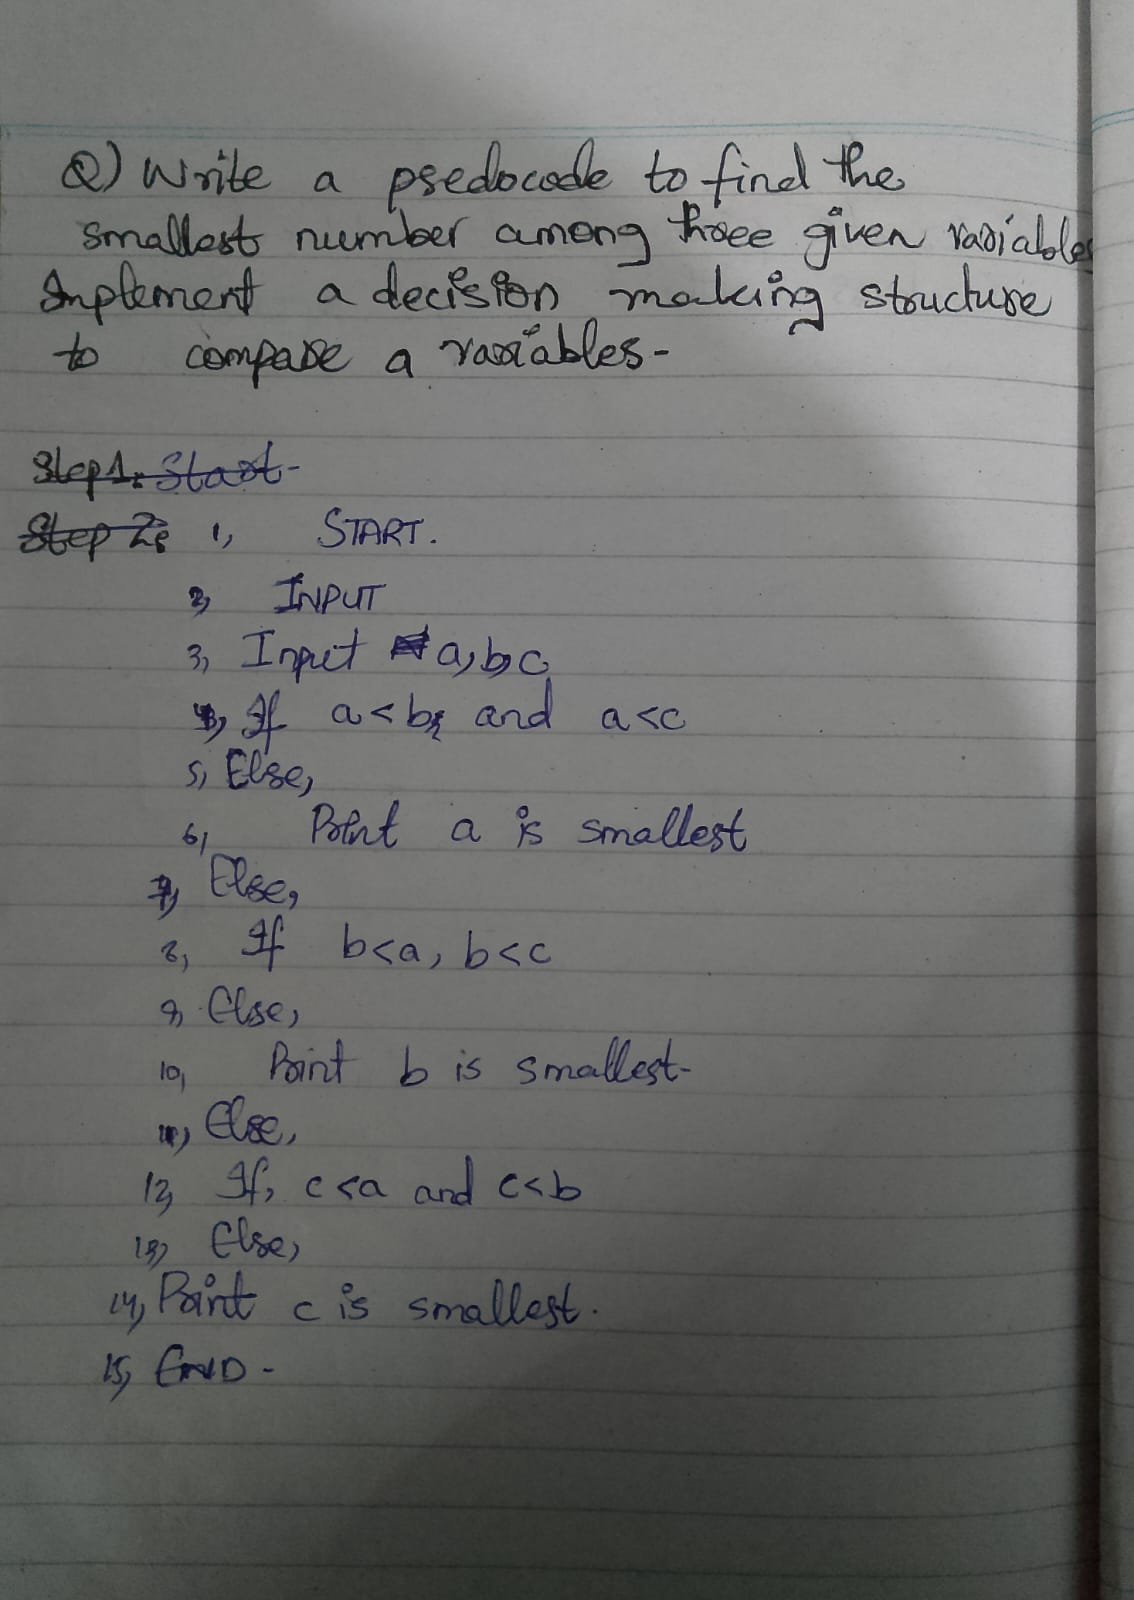 Q) Write a psedocode to find the
smallest number among three given variables
Implement a decision making structure
to compare a variables-
Step1: Start-
Step 2: 1, START.
2, INPUT
3, Input a,b,c
4, If a<b, and a<c
5, Else,
6, Print a is smallest
7, Else,
8, If b<a, b<c
9, Else,
10, Print b is smallest-
11, Else,
12, If, c<a and c<b
13, Else,
14, Print c is smallest.
15, END-